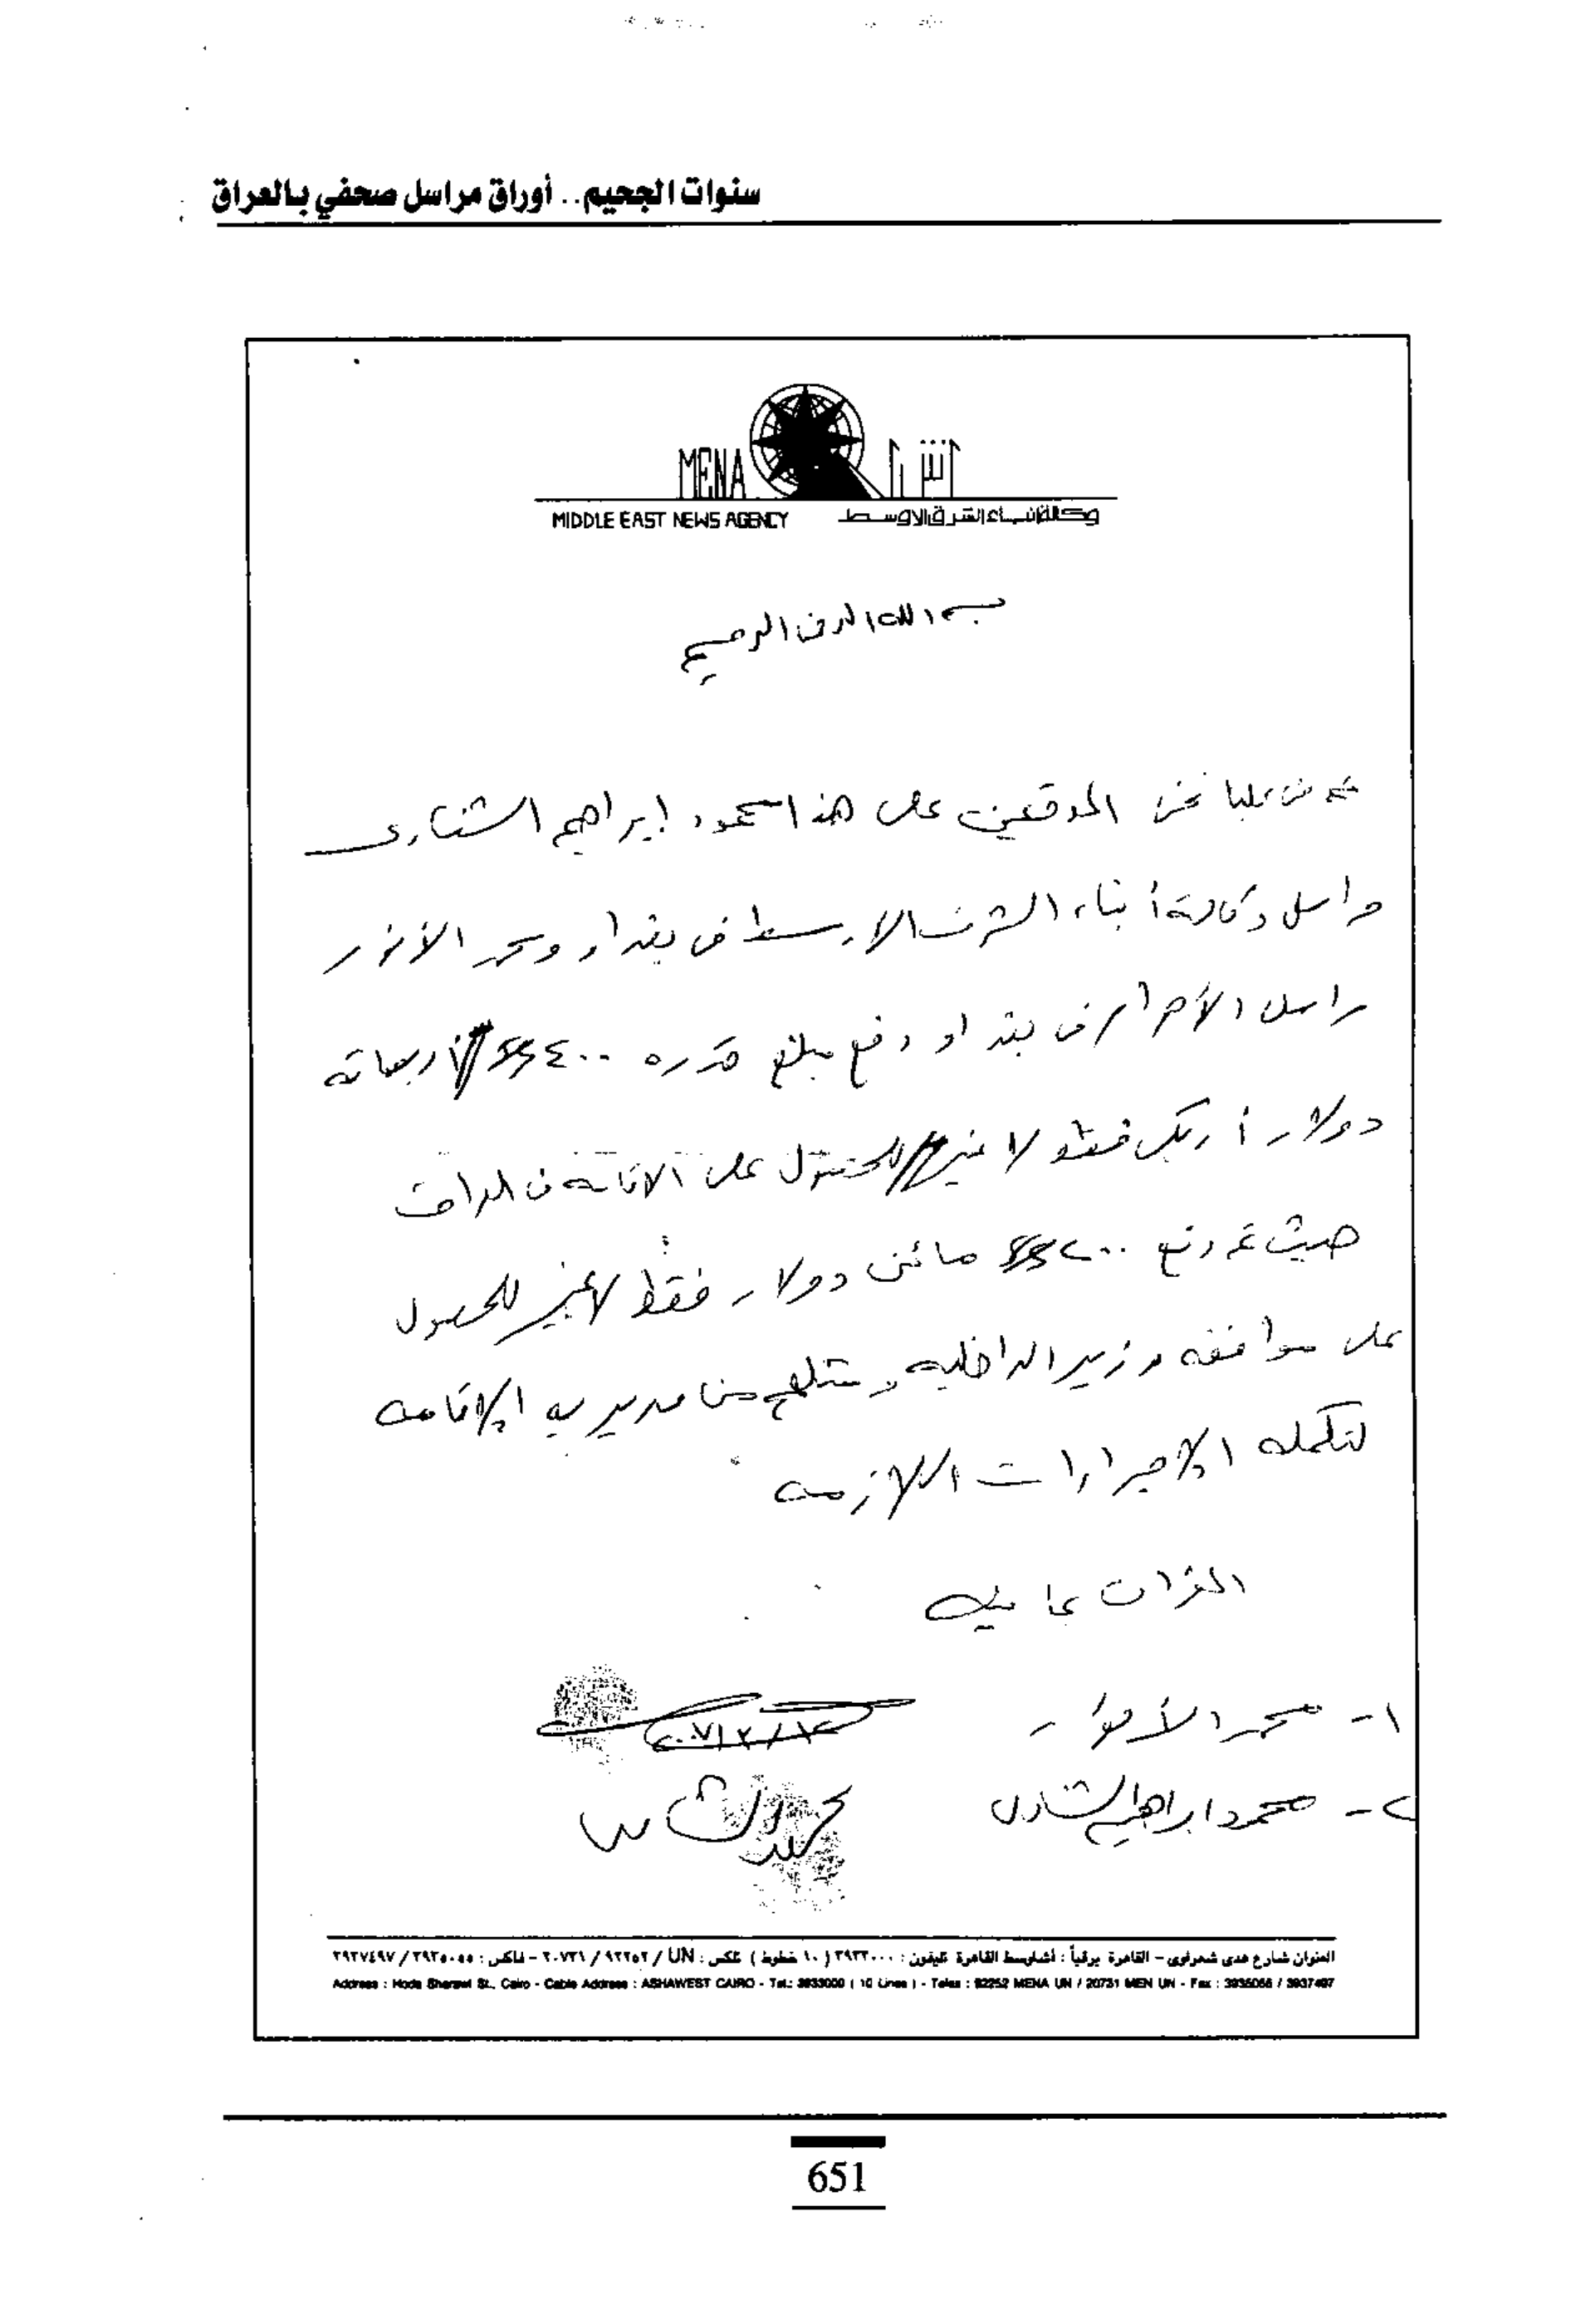 سنوات الجحيم.. أوراق مراسل صحفي بالعراق
MENA أ ش أ
MIDDLE EAST NEWS AGENCY وكالة أنباء الشرق الاوسط
بسم الله الرحمن الرحيم
نحن الموقعين على هذا محمود إبراهيم الشناوى
مراسل وكالة أنباء الشرق الاوسط فى بغداد ومحمد الأنور
مراسل الأهرام فى بغداد دفع مبلغ قدره ٤٠٠ $ أربعمائة
دولار أمريكى فقط لا غير للحصول على الاقامة فى العراق
حيث تم دفع ٢٠٠ $ مائتى دولار فقط لا غير للحصول
على موافقه وزير الداخليه من مديريه الإقامه
لتكمله الإجراءات اللازمه
المقران بما فيه
١- محمد الأنور
٢٠٠٧/٣/١٢
٢- محمود ابراهيم الشناوى
العنوان شارع هدى شعراوى - القاهرة برقياً : أشاوسط القاهرة تليفون : ٣٩٣٣٠٠٠ ( ١٠ خطوط ) تلكس : UN / ٩٢٢٥٢ / ٢٠٧٣١ - فاكس : ٣٩٣٥٠٥٥ / ٣٩٣٧٤٩٧
Address : Hoda Sharawi St., Cairo - Cable Address : ASHAWEST CAIRO - Tel.: 3933000 ( 10 Lines ) - Telex : 92252 MENA UN / 20731 MEN UN - Fax : 3935055 / 3937497
651